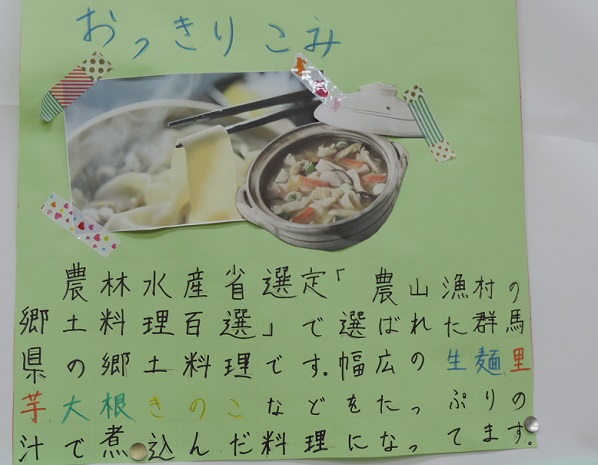 おっきりこみ
農林水産省選定「農山漁村の
郷土料理百選」で選ばれた群馬
県の郷土料理です。幅広の生麺里
芋大根きのこなどをたっぷりの
汁で煮込んだ料理になってます。